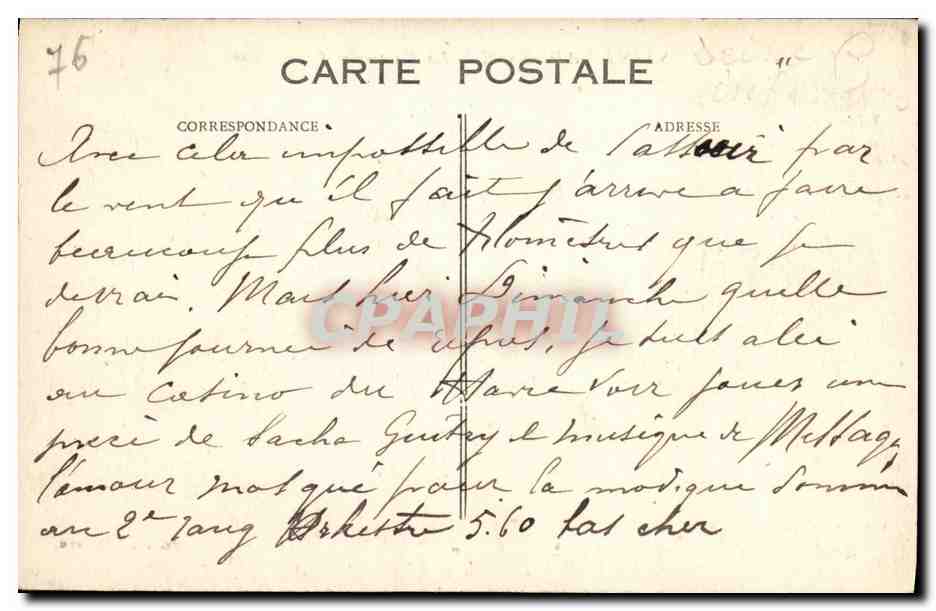 76
CARTE POSTALE
CORRESPONDANCE
ADRESSE
Avec cela impossible de par
le vent qu'il fait j'arrive a faire
beaucoup plus de que je
devrai. Mais hier Dimanche quelle
bonne journée de repos, je suis alei
au Casino du Havre voir jouer une
piece de Sacha Guitry et musique de Messag
l'amour masqué pour la modique somme
au 2e rang Orkestre 5.60 pas cher
CPAPHIL